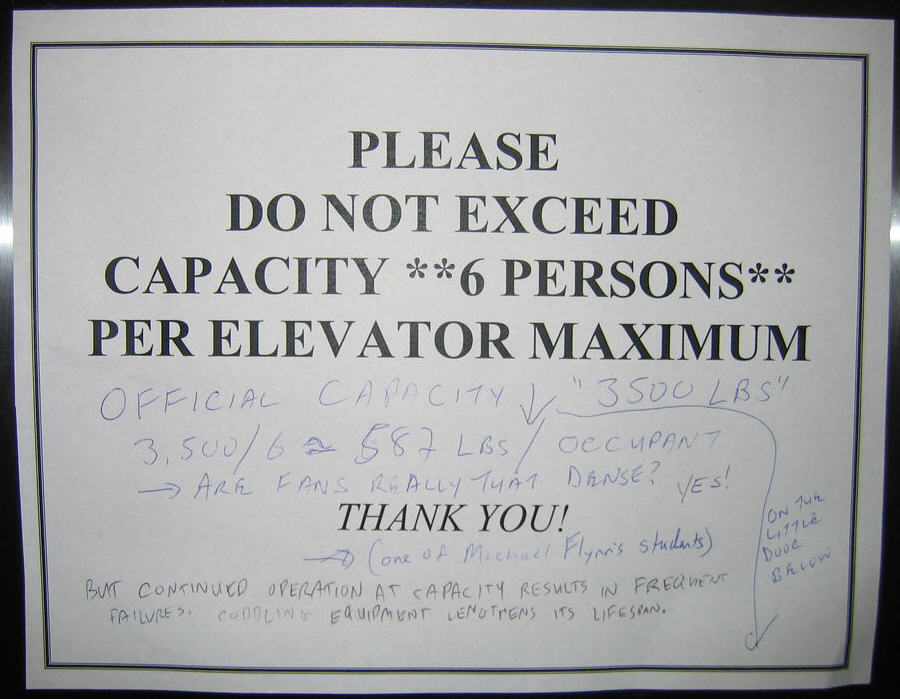 PLEASE
DO NOT EXCEED
CAPACITY **6 PERSONS**
PER ELEVATOR MAXIMUM
OFFICIAL CAPACITY ↓ "3500 LBS"
3,500/6 ≈ 587 LBS/OCCUPANT
→ ARE FANS REALLY THAT DENSE? YES!
THANK YOU!
→ (one of Michael Flynn's students)
ON THE
LITTLE
DOOR
BELOW
BUT CONTINUED OPERATION AT CAPACITY RESULTS IN FREQUENT
FAILURES. CODDLING EQUIPMENT LENGTHENS ITS LIFESPAN.